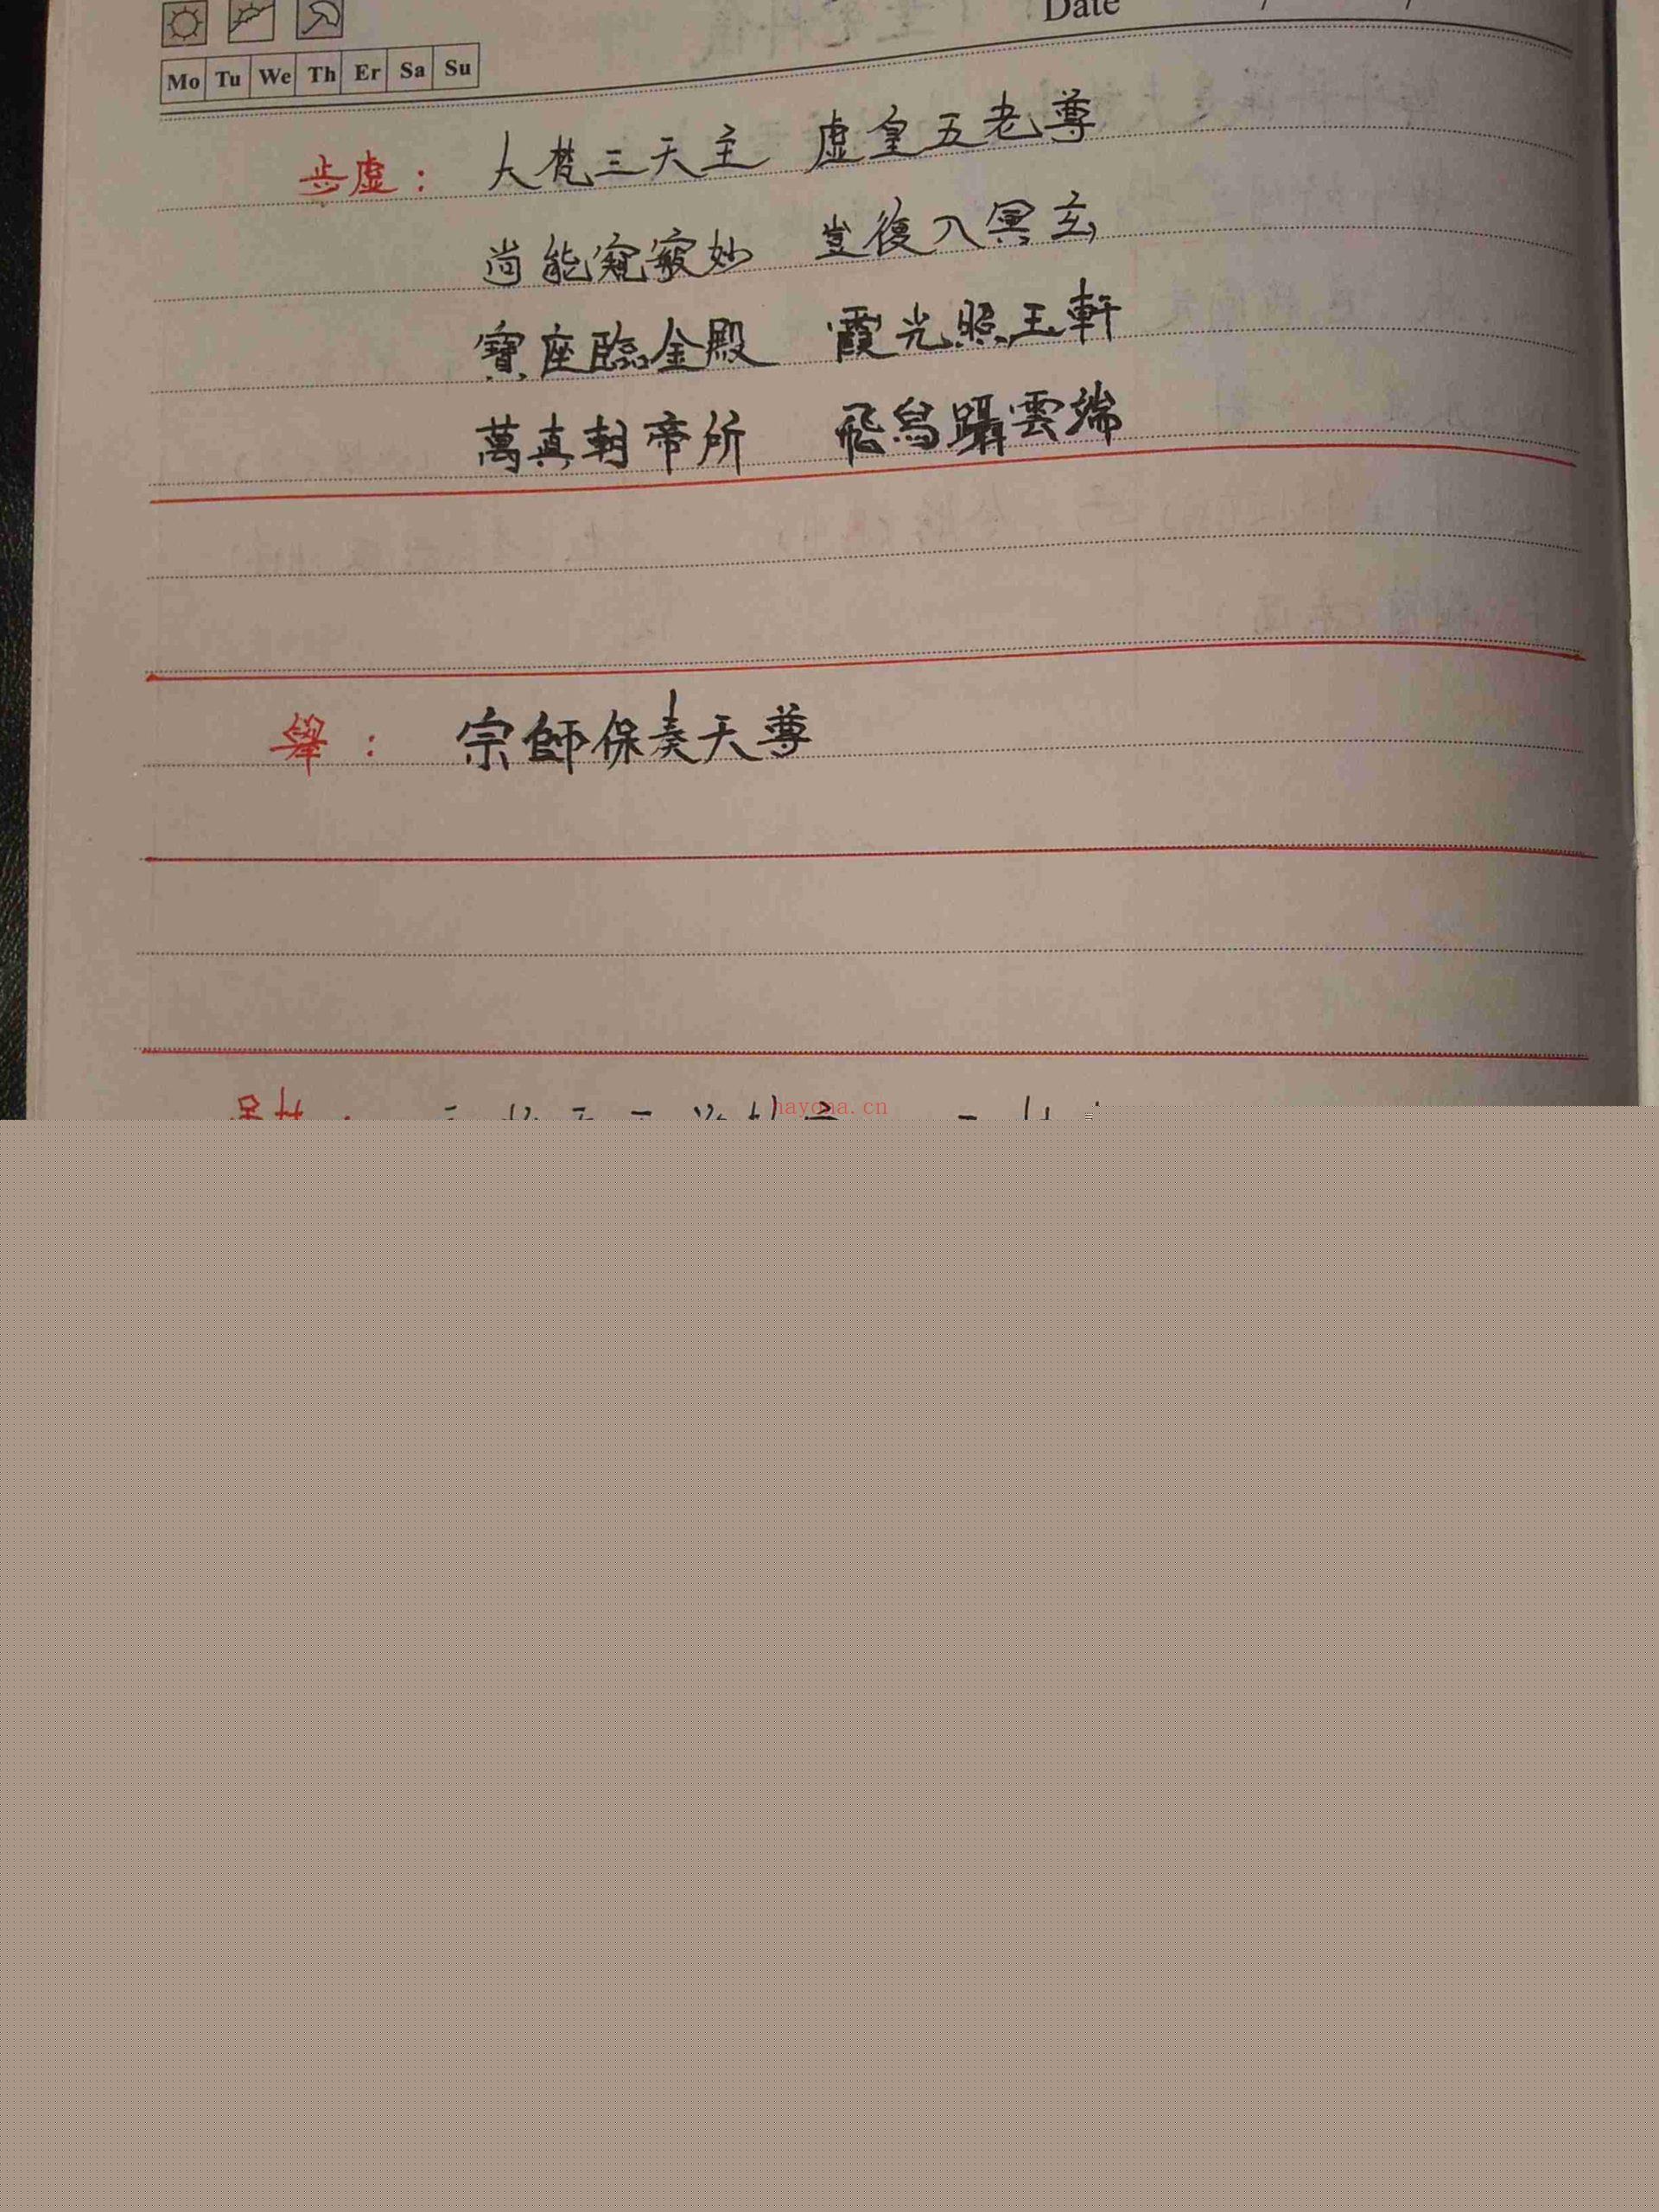 Date / /
Mo Tu We Th Er Sa Su
步虛： 大梵三天主 虛皇五老尊
尚能窺竅妙 豈復入冥玄
寶座臨金殿 霞光照玉軒
萬真朝帝所 飛舃躡雲端
舉： 宗師保奏天尊
nayona.cn